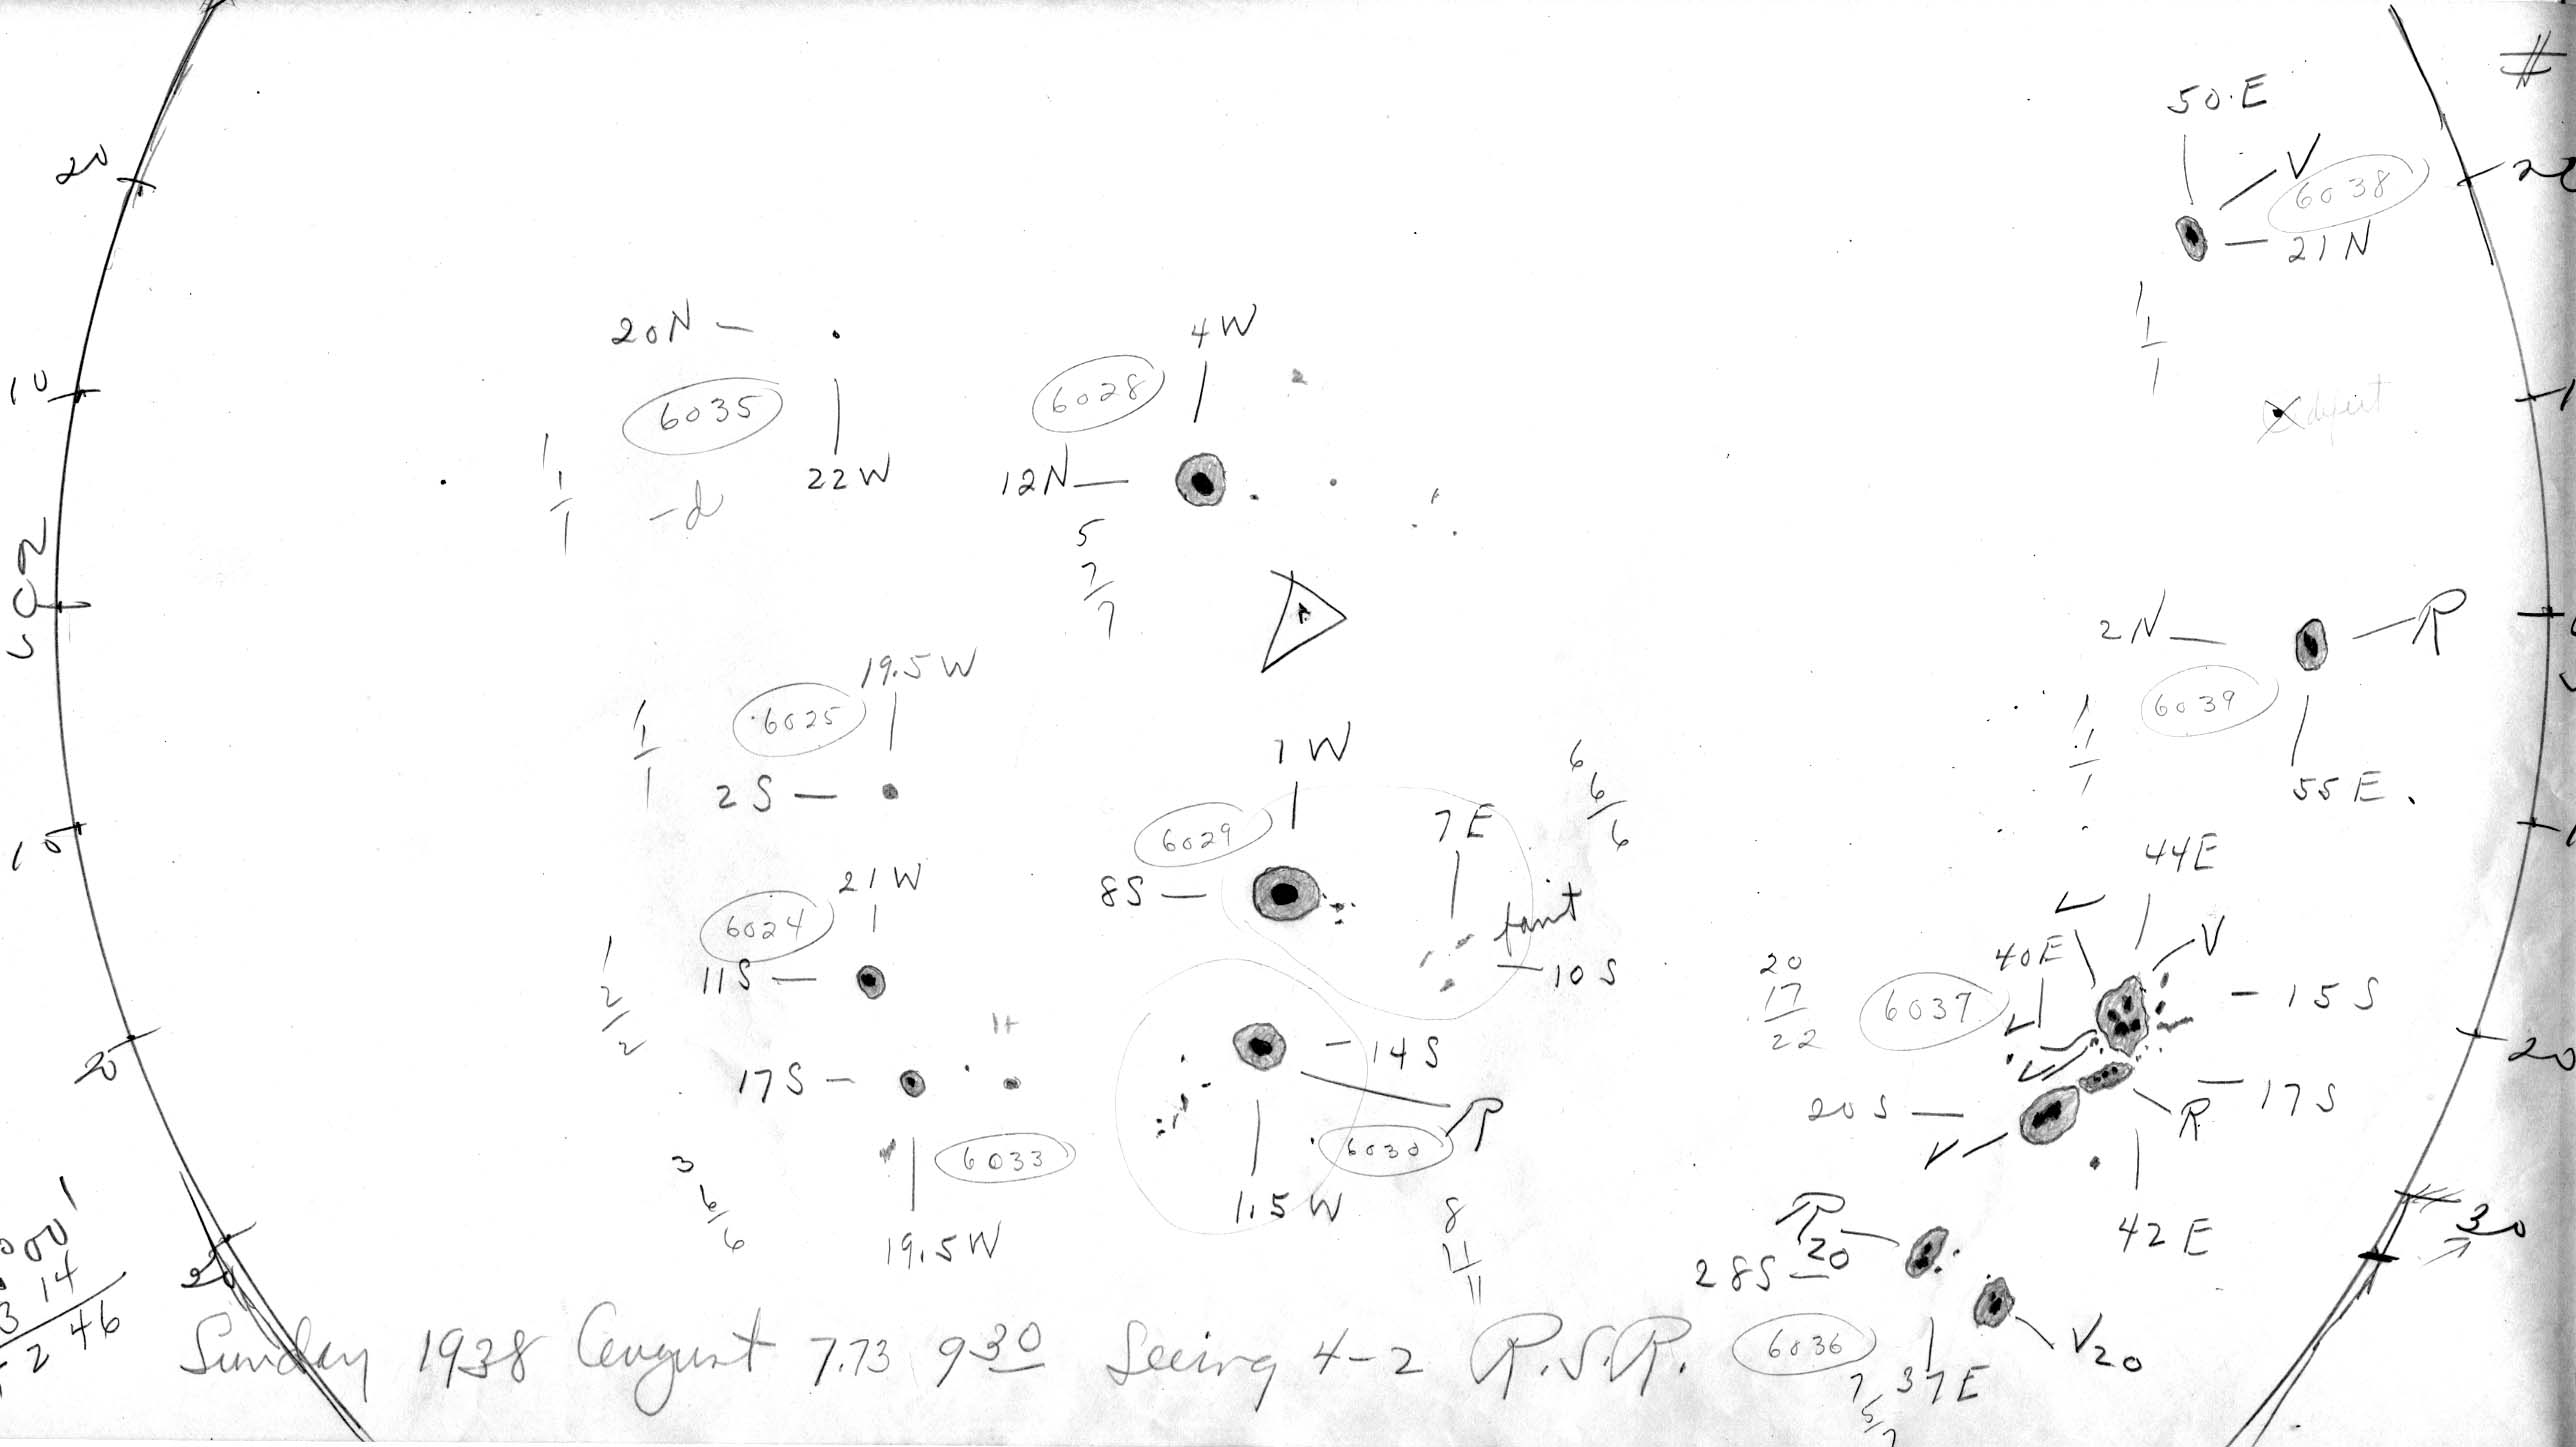 #
50.E
V
20
6038
21N
20N
4W
6028
10
6035
1
1
1
22W
-d
12N
5
7
7
2N
R
6039
1
1
1
55E.
19.5W
6025
1
1
1
2S
1W
6
6
6
6029
7E
10
8S
faint
10S
44E
V
40E
21W
6024
11S
1
2
2
20
17
22
6037
15S
17S
14S
R
20
20
20S
17S
R
V
3
6
6
6033
6030
42E
19.5W
1.5W
8
11
11
R
20
28S
30
14
46
Sunday 1938 August 7.73 9 30 Seeing 4-2 R.S.R.
6036
V20
37E
7
5